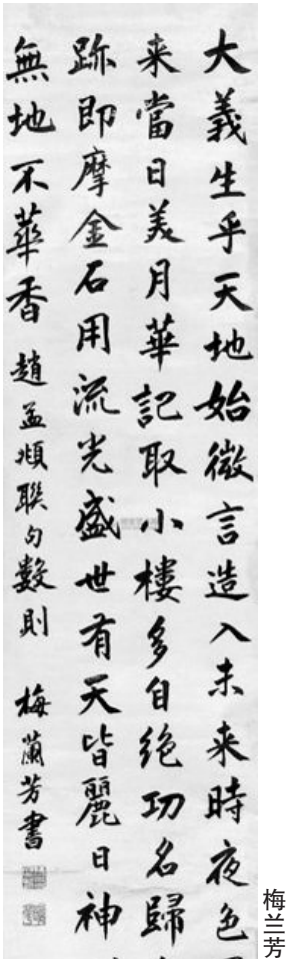 大義生乎天地始微言造入未来時夜色
来當日美月華記取小樓多自絶功名歸
跡即摩金石用流光盛世有天皆麗日神
無地不華香 趙孟頫聯句數則 梅蘭芳書
梅兰芳